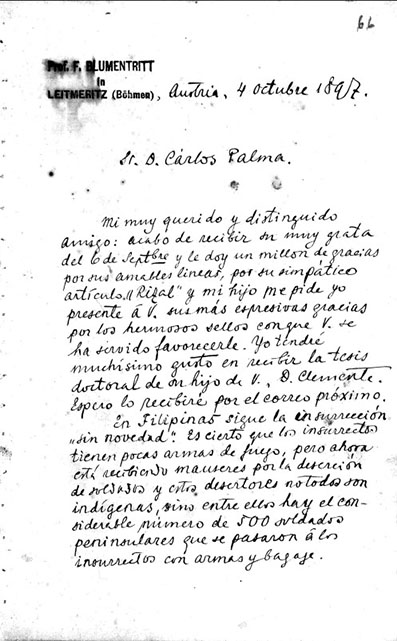 66
Prof. F. BLUMENTRITT
in
LEITMERITZ (Böhmen), Austria, 4 octubre 1897.
Sr. D. Cárlos Palma.
Mi muy querido y distinguido
amigo: acabo de recibir su muy grata
del 6 de Septbre y le doy un millon de gracias
por sus amables lineas, por su simpático
artículo „Rizal" y mi hijo me pide yo
presente á V. sus más espresivas gracias
por los hermosos sellos con que V. se
ha servido favorecerle. Yo tendré
muchísimo gusto en recibir la tesis
doctoral de su hijo de V., D. Clemente.
Espero lo recibiré por el correo próximo.
En Filipinas sigue la insurrección
„sin novedad". Es cierto que los insurrectos
tienen pocas armas de fuego, pero ahora
está recibiendo mauseres por la deserción
de soldados y estos desertores no todos son
indígenas, sino entre ellos hay el con-
siderable número de 500 soldados
peninsulares que se pasaron á los
insurrectos con armas y bagaje.